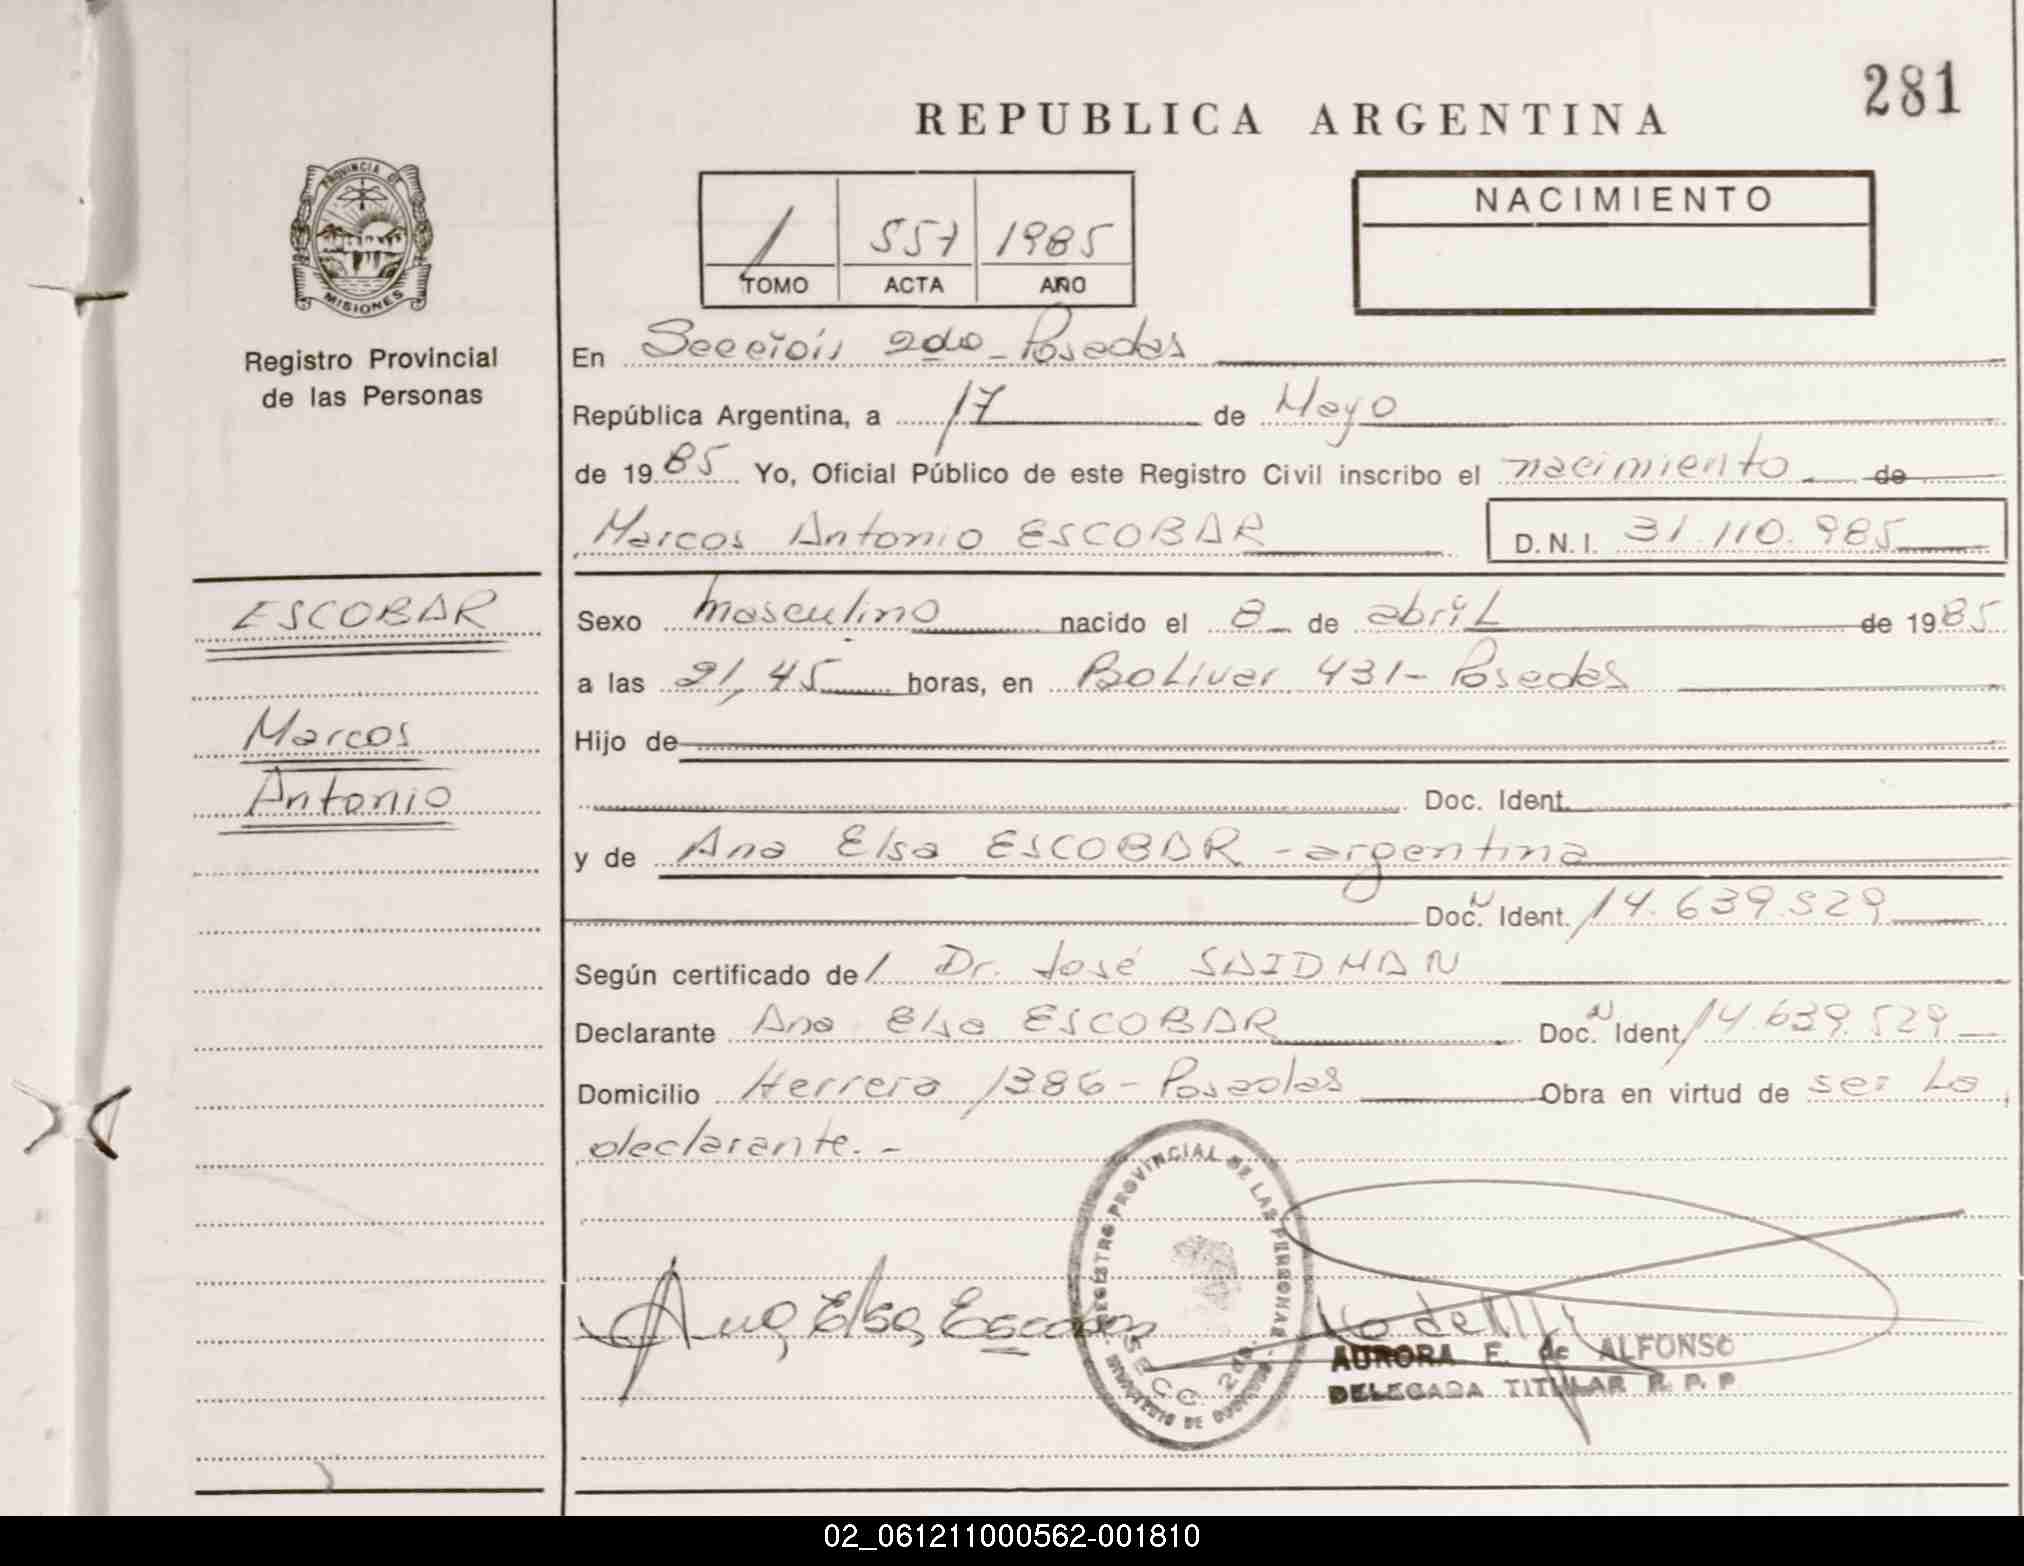 281
REPUBLICA ARGENTINA
PROVINCIA DE
MISIONES
Registro Provincial
de las Personas
1 557 1985
TOMO ACTA AÑO
NACIMIENTO
En Sección 2da - Posadas
República Argentina, a 17 de Mayo
de 1985 Yo, Oficial Público de este Registro Civil inscribo el nacimiento de
Marcos Antonio ESCOBAR D.N.I. 31.110.985
ESCOBAR
Marcos
Antonio
Sexo masculino nacido el 8 de abril de 1985
a las 21,45 horas, en Bolivar 431 - Posadas
Hijo de
Doc. Ident.
y de Ana Elsa ESCOBAR - argentina
Doc. N Ident. 14.639.529
Según certificado del Dr. José SAIDMAN
Declarante Ana Elsa ESCOBAR Doc. N Ident. 14.639.529
Domicilio Herrera 1386 - Posadas Obra en virtud de ser la
declarante.-
Ana Elsa Escobar
REGISTRO PROVINCIAL DE LAS PERSONAS
SECC. 2da.
MINISTERIO DE GOBIERNO
AURORA E. de ALFONSO
DELEGADA TITULAR R. P. P.
02_061211000562-001810